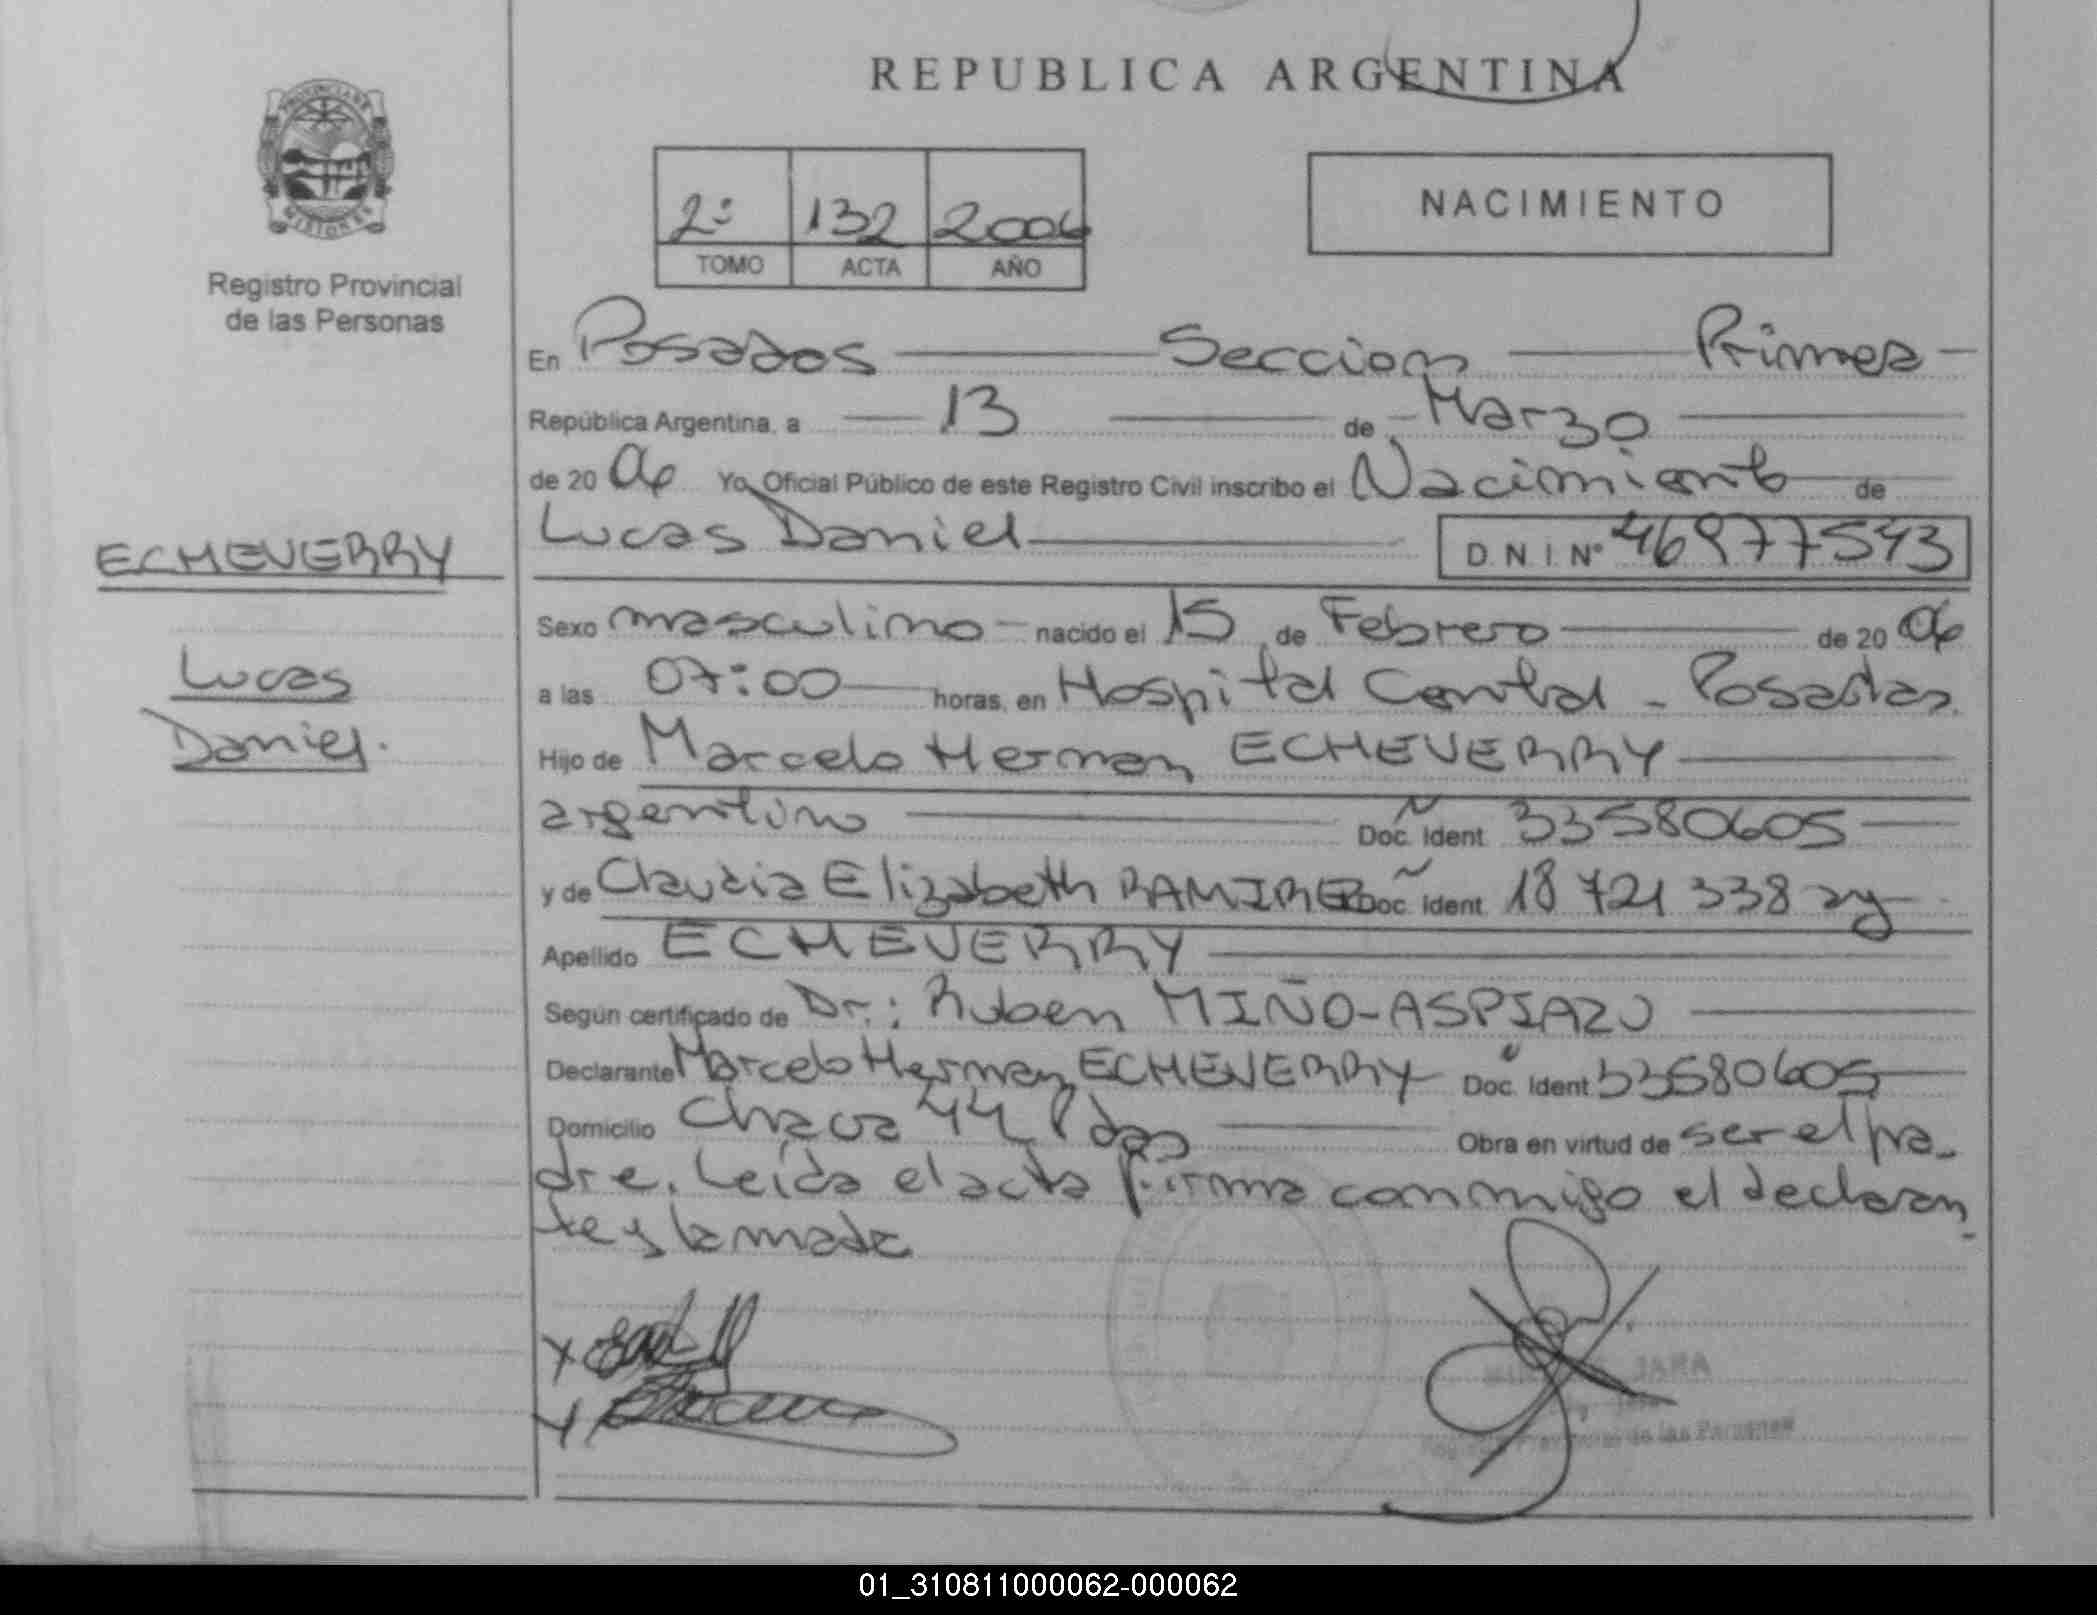 REPUBLICA ARGENTINA
PROVINCIA DE
MISIONES
Registro Provincial
de las Personas
2º 132 2006
TOMO ACTA AÑO
NACIMIENTO
En Posadas Seccion Primera
República Argentina, a 13 de Marzo
de 20 06 Yo, Oficial Público de este Registro Civil inscribo el Nacimiento de
Lucas Daniel D.N.I. Nº 46977543
ECHEVERRY
Lucas
Daniel.
Sexo masculino nacido el 15 de Febrero de 20 06
a las 07:00 horas, en Hospital Central - Posadas
Hijo de Marcelo Hernan ECHEVERRY
argentino Doc. Ident. 33580605
y de Claudia Elizabeth RAMIREZ Doc. Ident. 18 721 338
Apellido ECHEVERRY
Según certificado de Dr.: Ruben MIÑO-ASPIAZU
Declarante Marcelo Hernan ECHEVERRY Doc. Ident. 33580605
Domicilio Chacra 44 Pdas Obra en virtud de ser el pa-
dre. Leída el acta firma conmigo el declaran-
te y la madre
JARA
Registro Provincial de las Personas
01_310811000062-000062